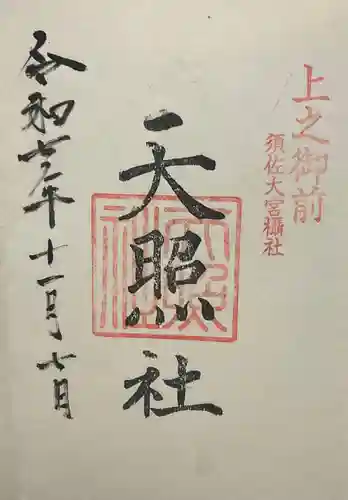 上之御前
須佐大宮攝社
天照社
令和六年十一月七日